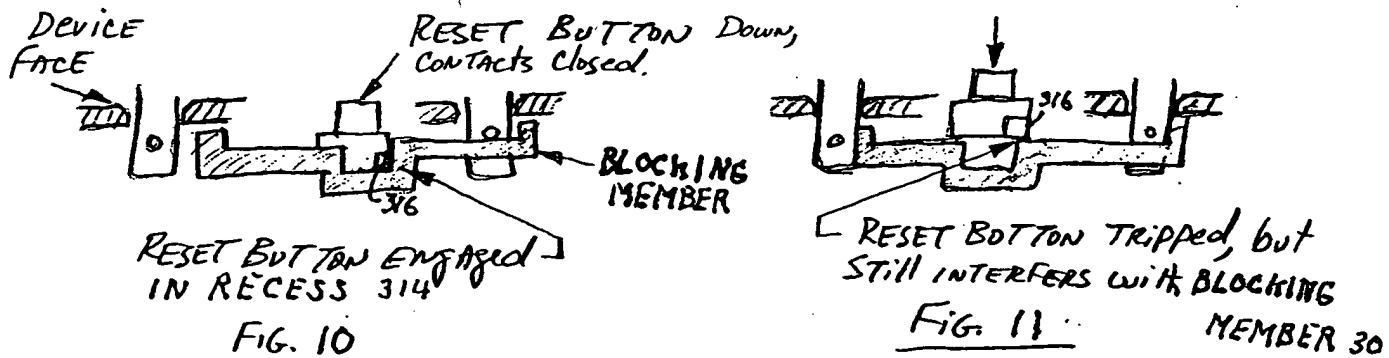 DEVICE
FACE
RESET BUTTON DOWN,
CONTACTS Closed.
316
BLOCKING
MEMBER
RESET BUTTON ENGAged
IN RECESS 314
FIG. 10
316
RESET BOTTON TRIPPed, but
STill INTERFERS with BLOCKING
MEMBER 30
FIG. 11